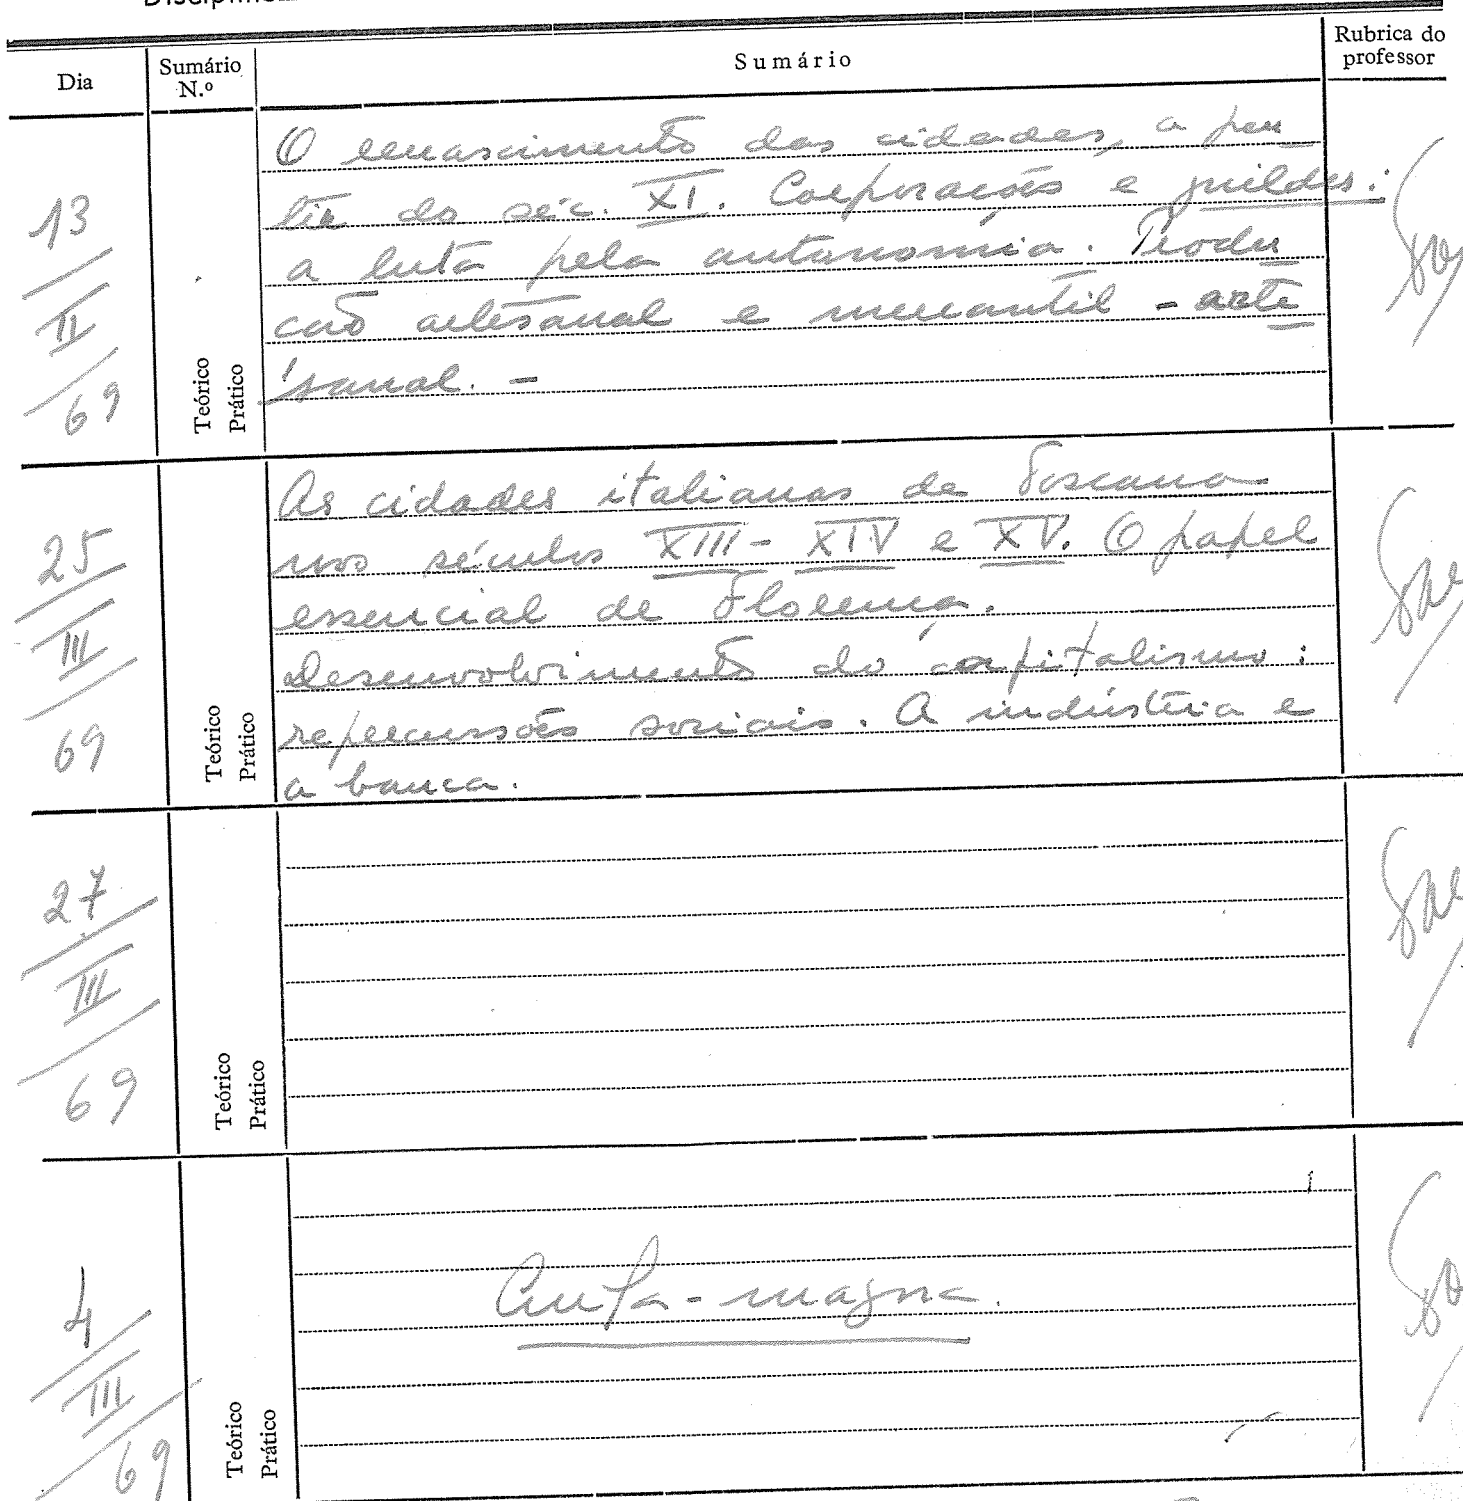 Dia
Sumário N.º
Sumário
Rubrica do professor
13
II
69
Teórico
Prático
O renascimento das cidades, a par
tir do séc. XI. Corporações e guildas:
a luta pela autonomia. Produ
ção artesanal e mercantil - arte
sanal. -
25
III
69
Teórico
Prático
As cidades italianas de Toscana
nos séculos XIII - XIV e XV. O papel
essencial de Florença.
Desenvolvimento do capitalismo:
repercussões sociais. A indústria e
a banca.
27
III
69
Teórico
Prático
4
III
69
Teórico
Prático
Aula-magna.